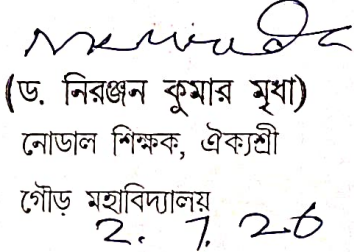 (ড. নিরঞ্জন কুমার মৃধা)
নোডাল শিক্ষক, ঐক্যশ্রী
গৌড় মহাবিদ্যালয়
2. 7. 26